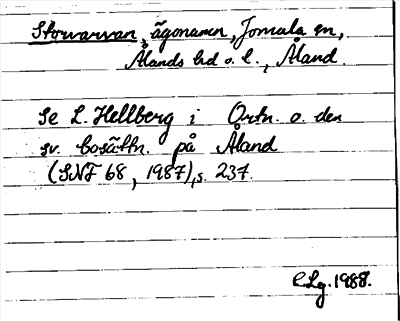 Storvarvan, ägonamn, Jomala sn,
Ålands hd o. l., Åland.
Se L. Hellberg i Ortn. o. den
sv. bosättn. på Åland
(SNF 68, 1987), s. 237.
C.Lg. 1988.